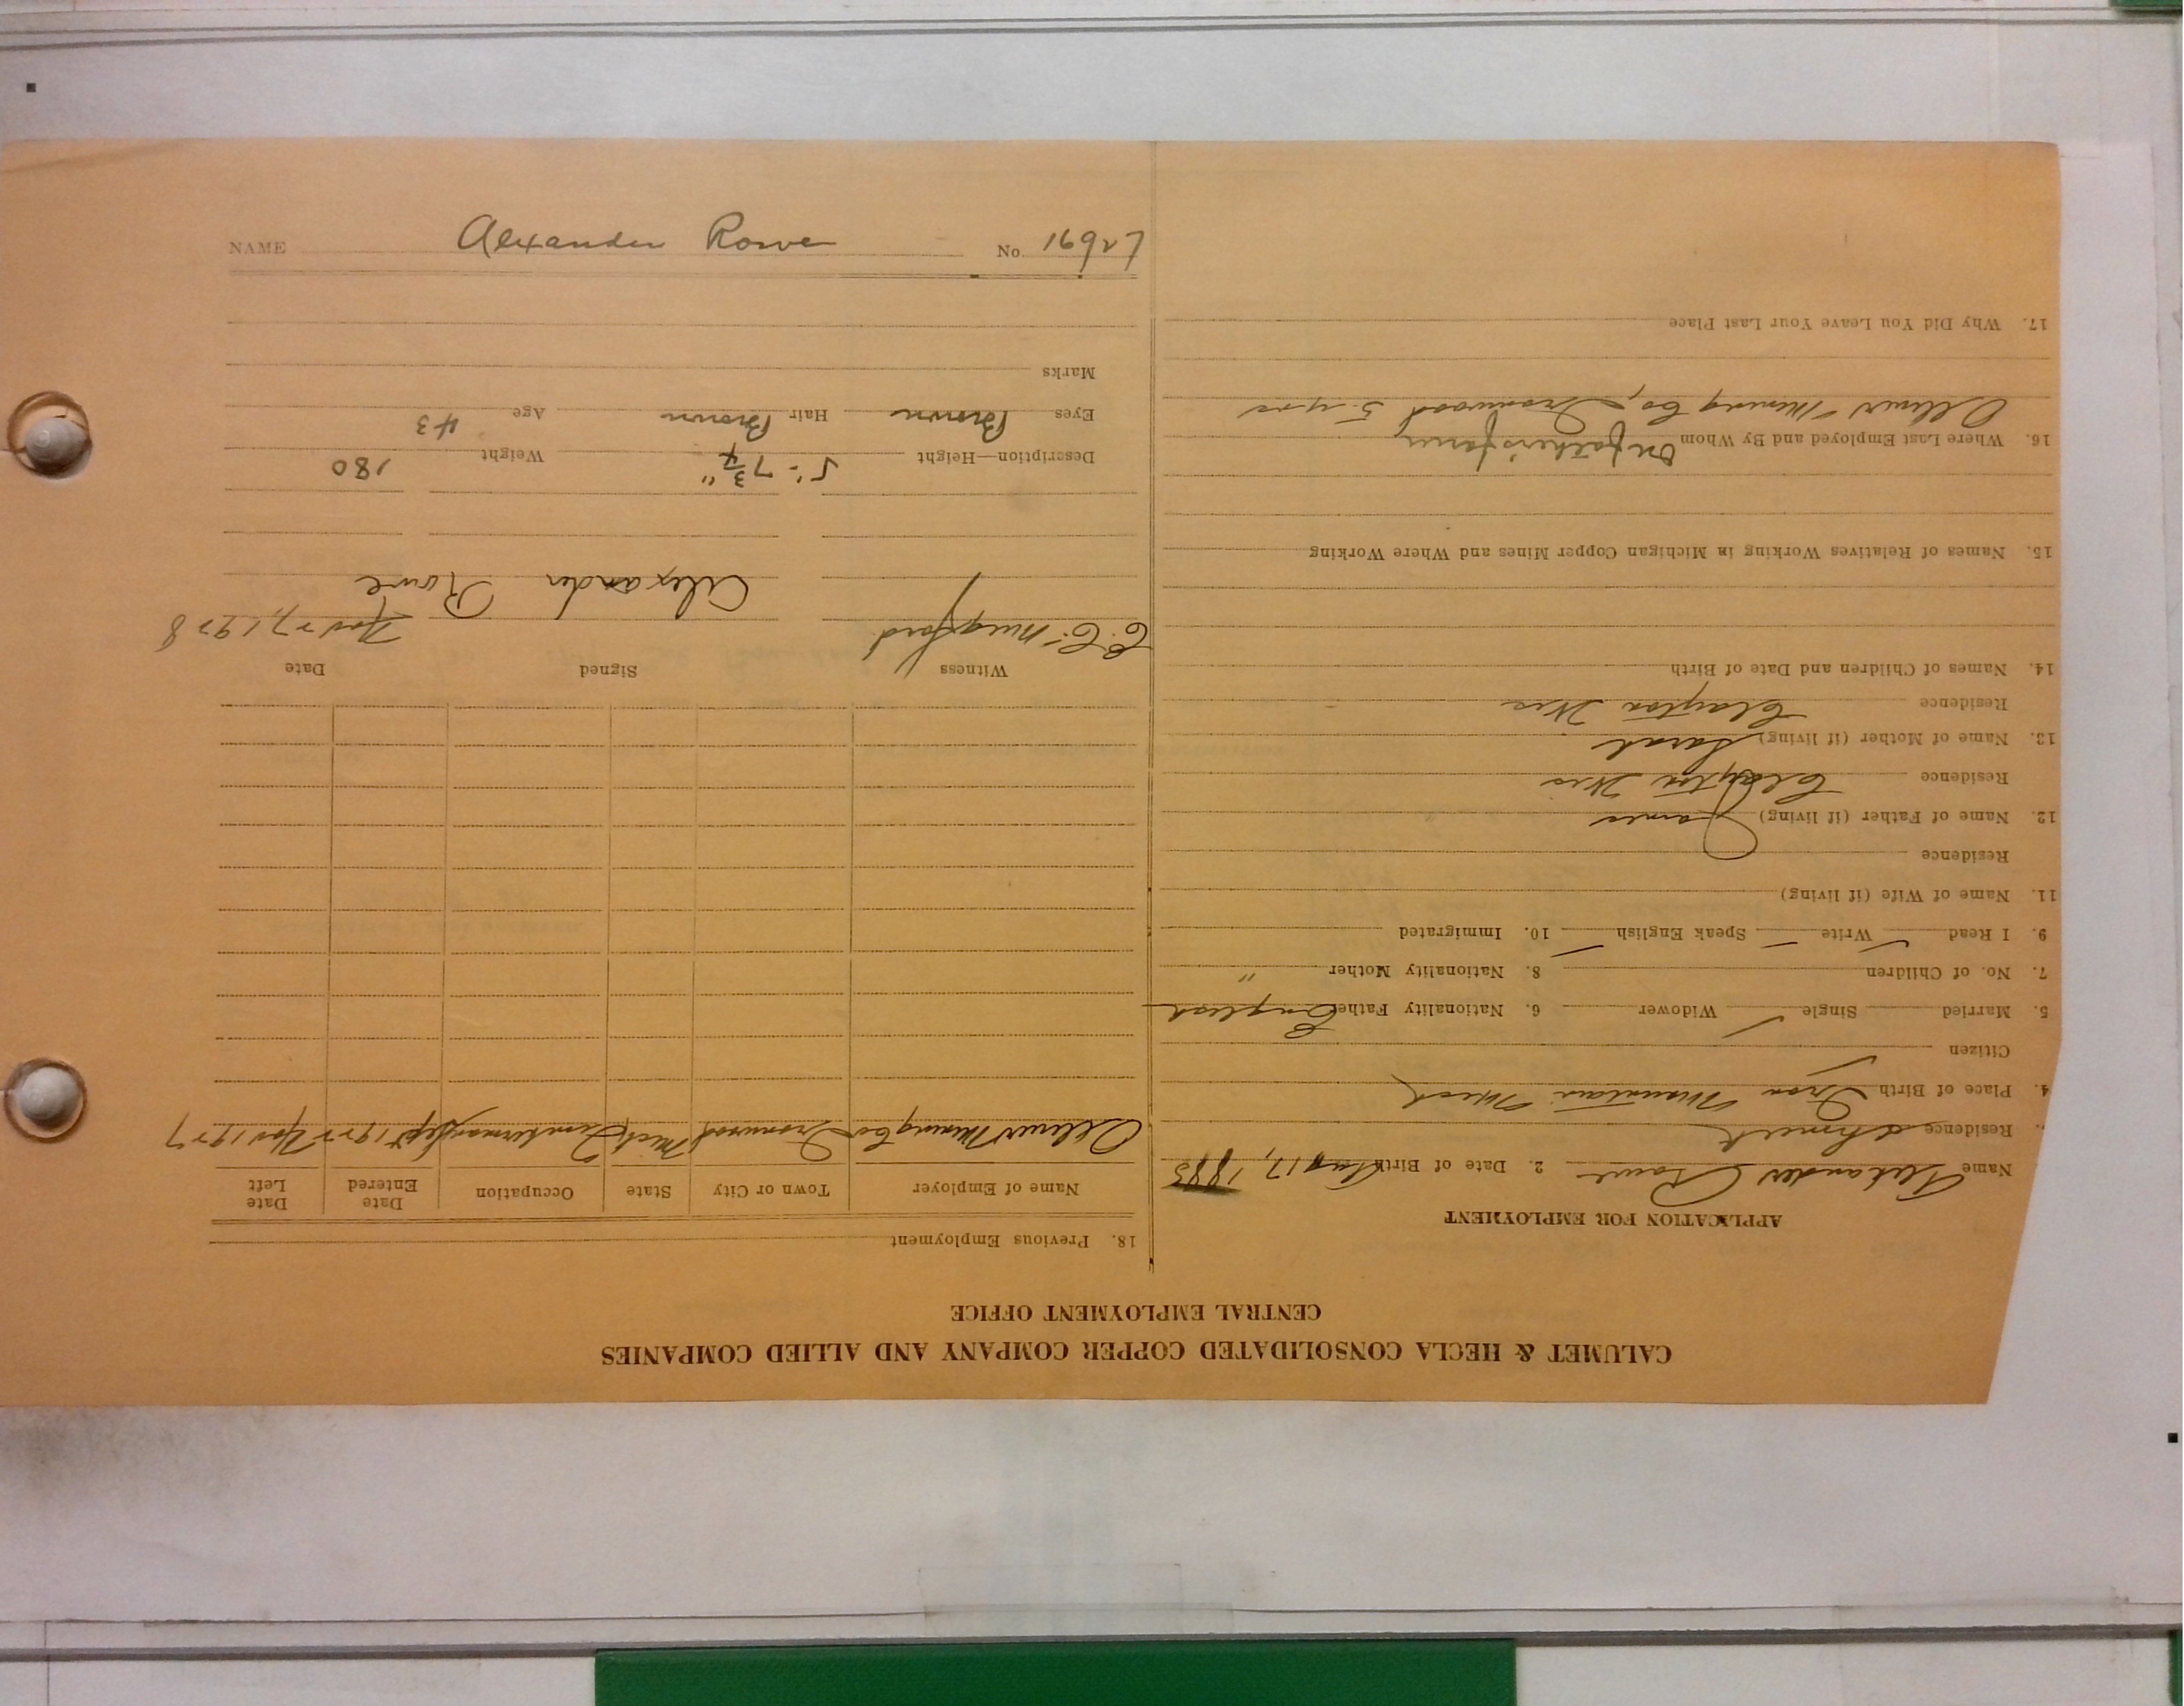 CALUMET & HECLA CONSOLIDATED COPPER COMPANY AND ALLIED COMPANIES
CENTRAL EMPLOYMENT OFFICE
APPLICATION FOR EMPLOYMENT
Name Alexander Rowe 2. Date of Birth Aug 17, 1885
Residence Ahmeek
4. Place of Birth Iron Mountain Mich
Citizen ✓
5. Married Single ✓ Widower 6. Nationality Father English
7. No. of Children 8. Nationality Mother "
9. I Read ✓ Write ✓ Speak English ✓ 10. Immigrated
11. Name of Wife (if living)
Residence
12. Name of Father (if living) James
Residence Clayton Wis
13. Name of Mother (if living) Sarah
Residence Clayton Wis
14. Names of Children and Date of Birth
15. Names of Relatives Working in Michigan Copper Mines and Where Working
16. Where Last Employed and By Whom On father's farm
Oliver Mining Co, Ironwood 5 yrs
17. Why Did You Leave Your Last Place
18. Previous Employment
Name of Employer Town or City State Occupation Date Entered Date Left
Oliver Mining Co Ironwood Mich Timberman Sept 1922 Nov 1927
Witness Signed Date
C. C. Mugford Nov 27, 1928
Alexander Rowe
Description—Height 5'-7 3/4" Weight 180
Eyes Brown Hair Brown Age 43
Marks
NAME Alexander Rowe No. 16927